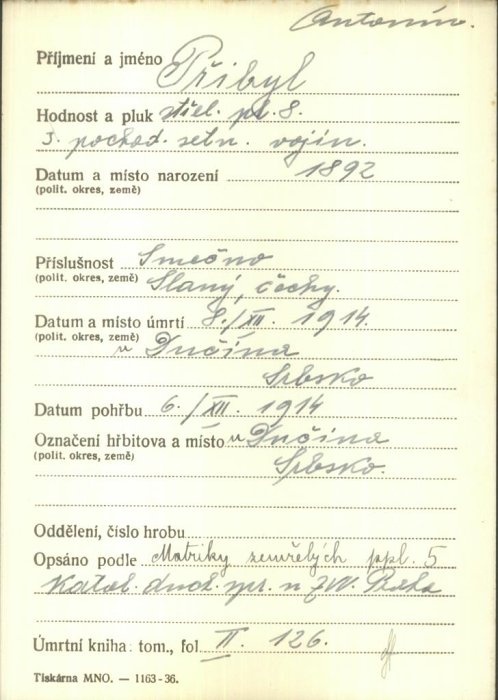 Antonín.
Příjmení a jméno Přibyl
Hodnost a pluk střel. pl. 8.
3. pochod. setn. vojín.
Datum a místo narození 1892
(polit. okres, země)
Příslušnost Smečno
(polit. okres, země) Slaný, čechy.
Datum a místo úmrtí 8./XII. 1914.
(polit. okres, země) u Dučina
Srbsko
Datum pohřbu 6./XII. 1914
Označení hřbitova a místo u Dučina
(polit. okres, země) Srbsko.
Oddělení, číslo hrobu
Opsáno podle Matriky zemřelých ppl. 5
Katol. duch. spr. n ZV. Praha
Úmrtní kniha: tom., fol. II. 126.
Tiskárna MNO. — 1163-36.